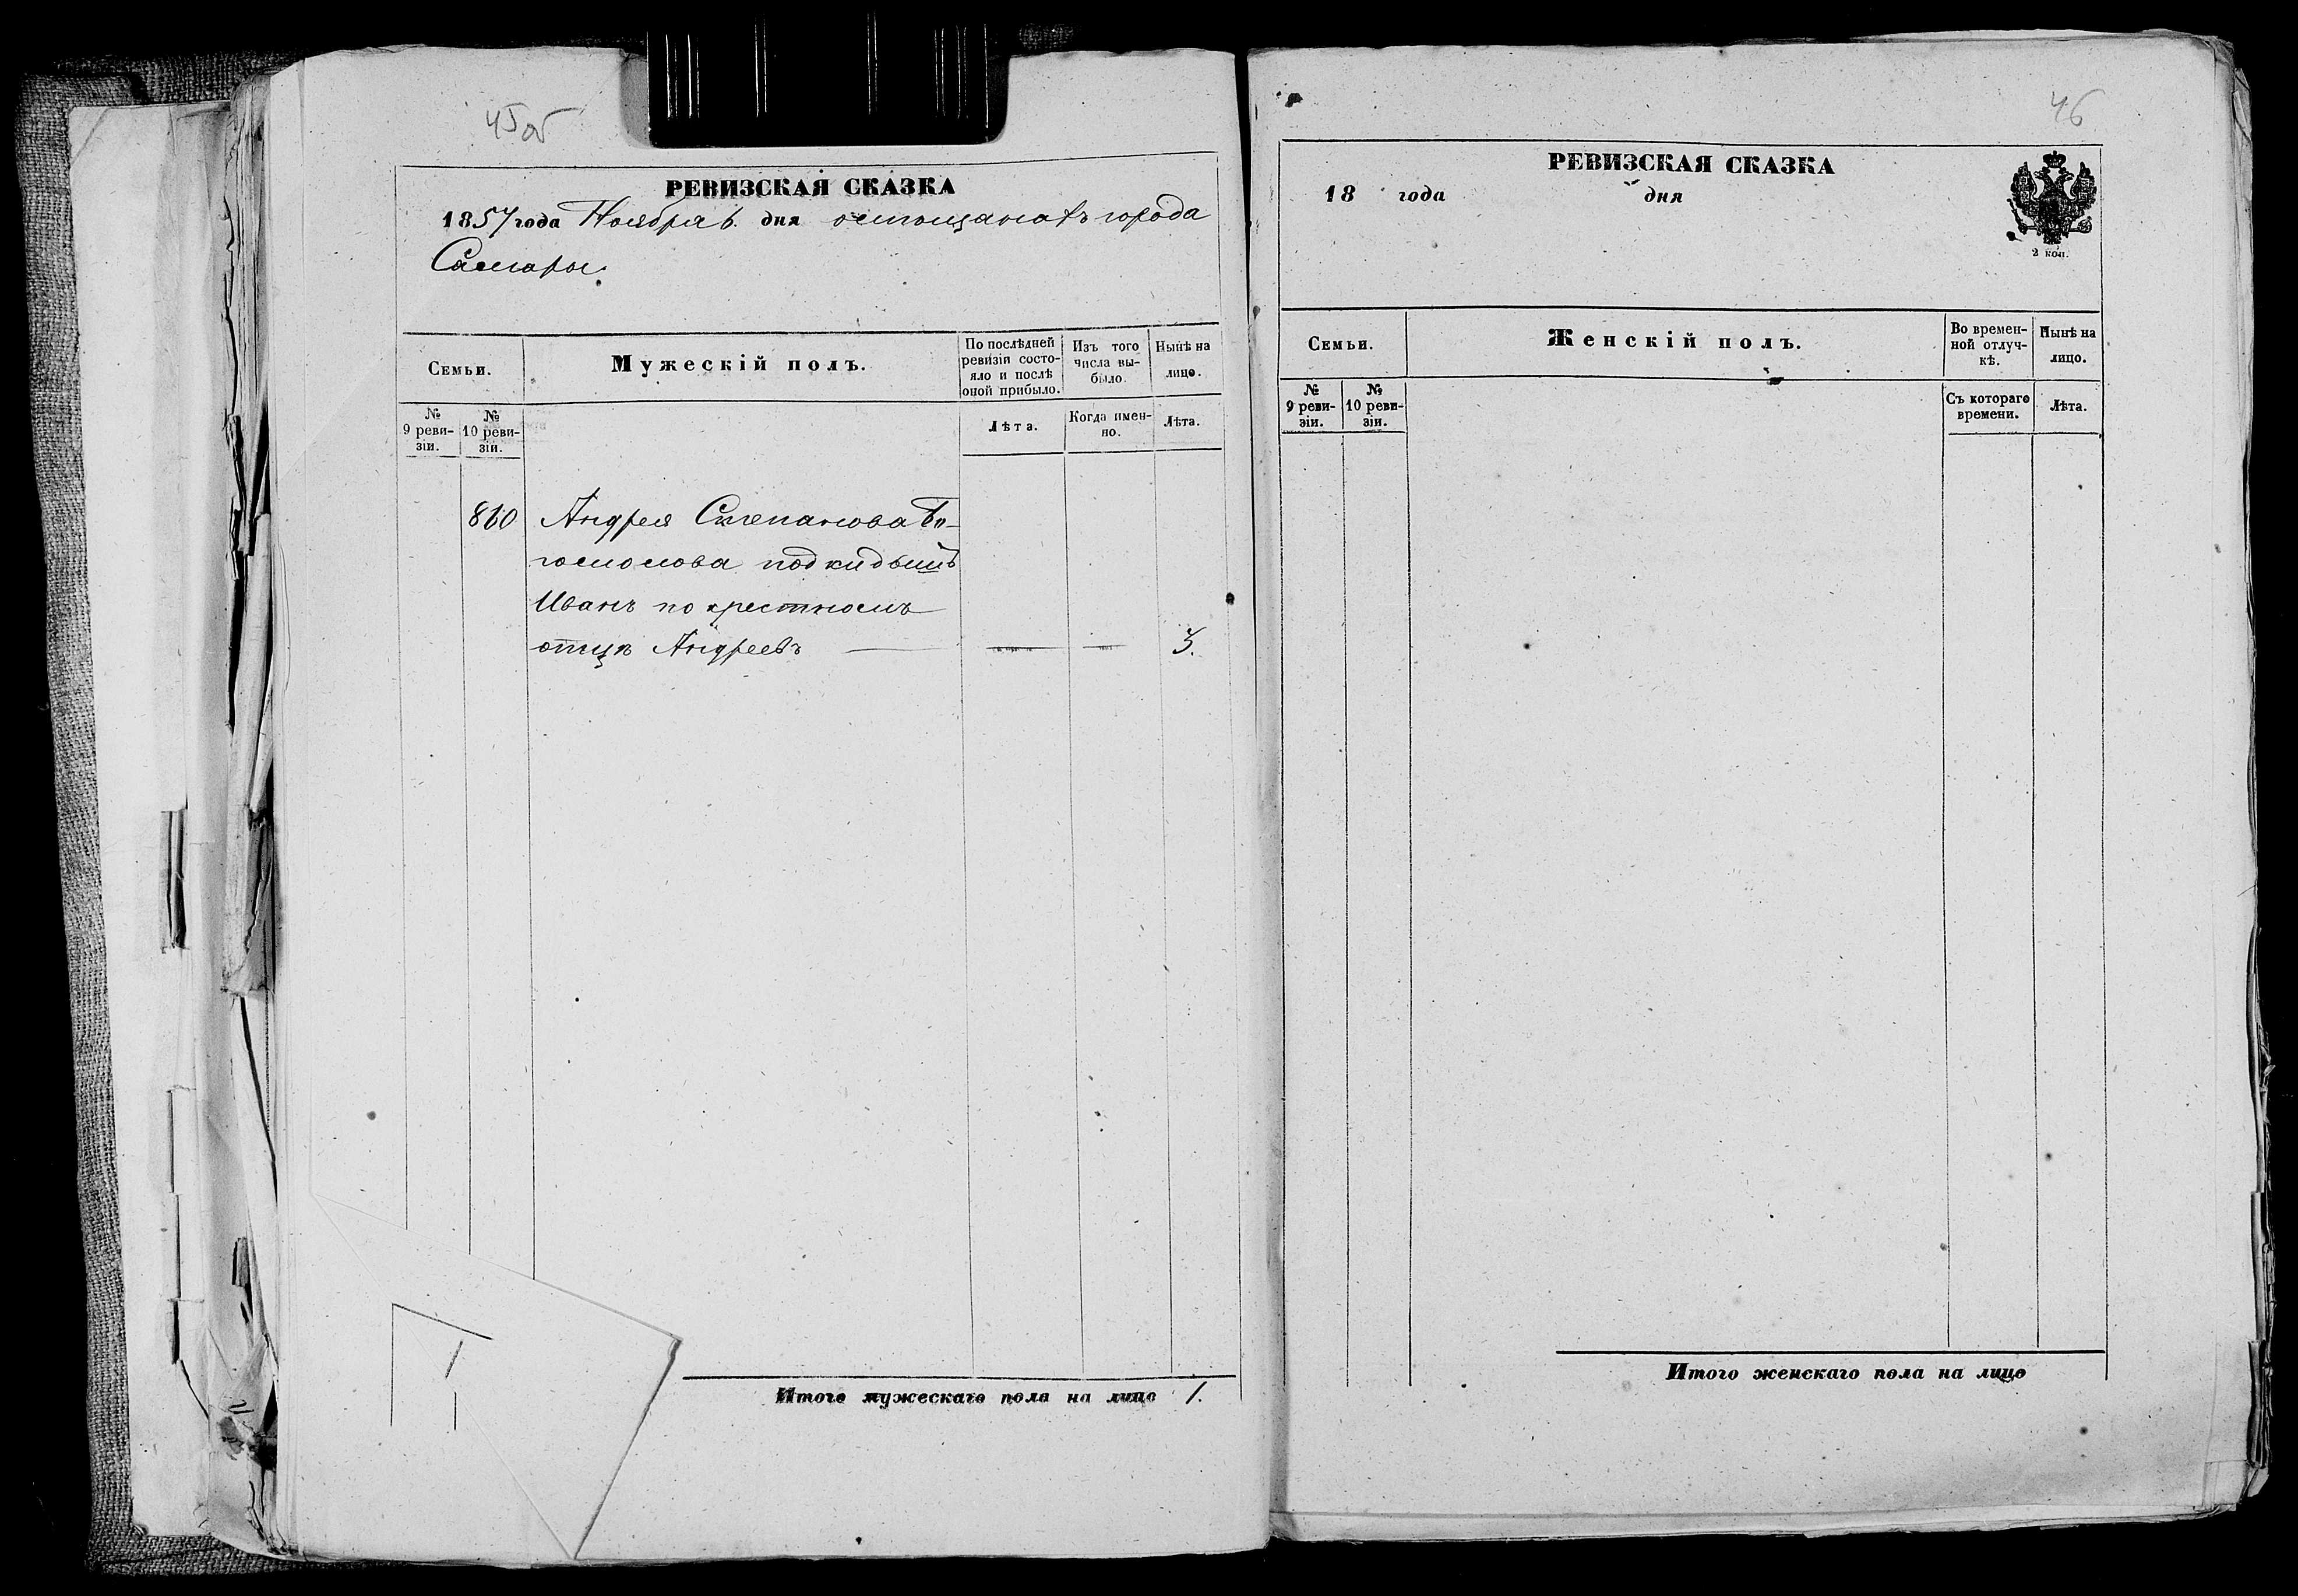 45об
РЕВИЗСКАЯ СКАЗКА
1857 года Ноября 6. дня о мещанахъ города
Самары.
Семьи.
Мужескій полъ.
По послѣдней ревизіи состо-
яло и послѣ оной прибыло.
Изъ того числа вы-
было.
Нынѣ на лицо.
№ 9 реви-
зіи.
№ 10 реви-
зіи.
Лѣта.
Когда имен-
но.
Лѣта.
860 Андрея Степанова Бо-
гомолова подкидышъ
Иванъ по крестномъ
отцѣ Андреевъ — — — 3.
Итого мужескаго пола на лицо 1.
46
РЕВИЗСКАЯ СКАЗКА
18 года дня
2 коп.
Семьи.
Женскій полъ.
Во времен-
ной отлуч-
кѣ.
Нынѣ на
лицо.
№ 9 реви-
зіи.
№ 10 реви-
зіи.
Съ котораго
времени.
Лѣта.
Итого женскаго пола на лицо